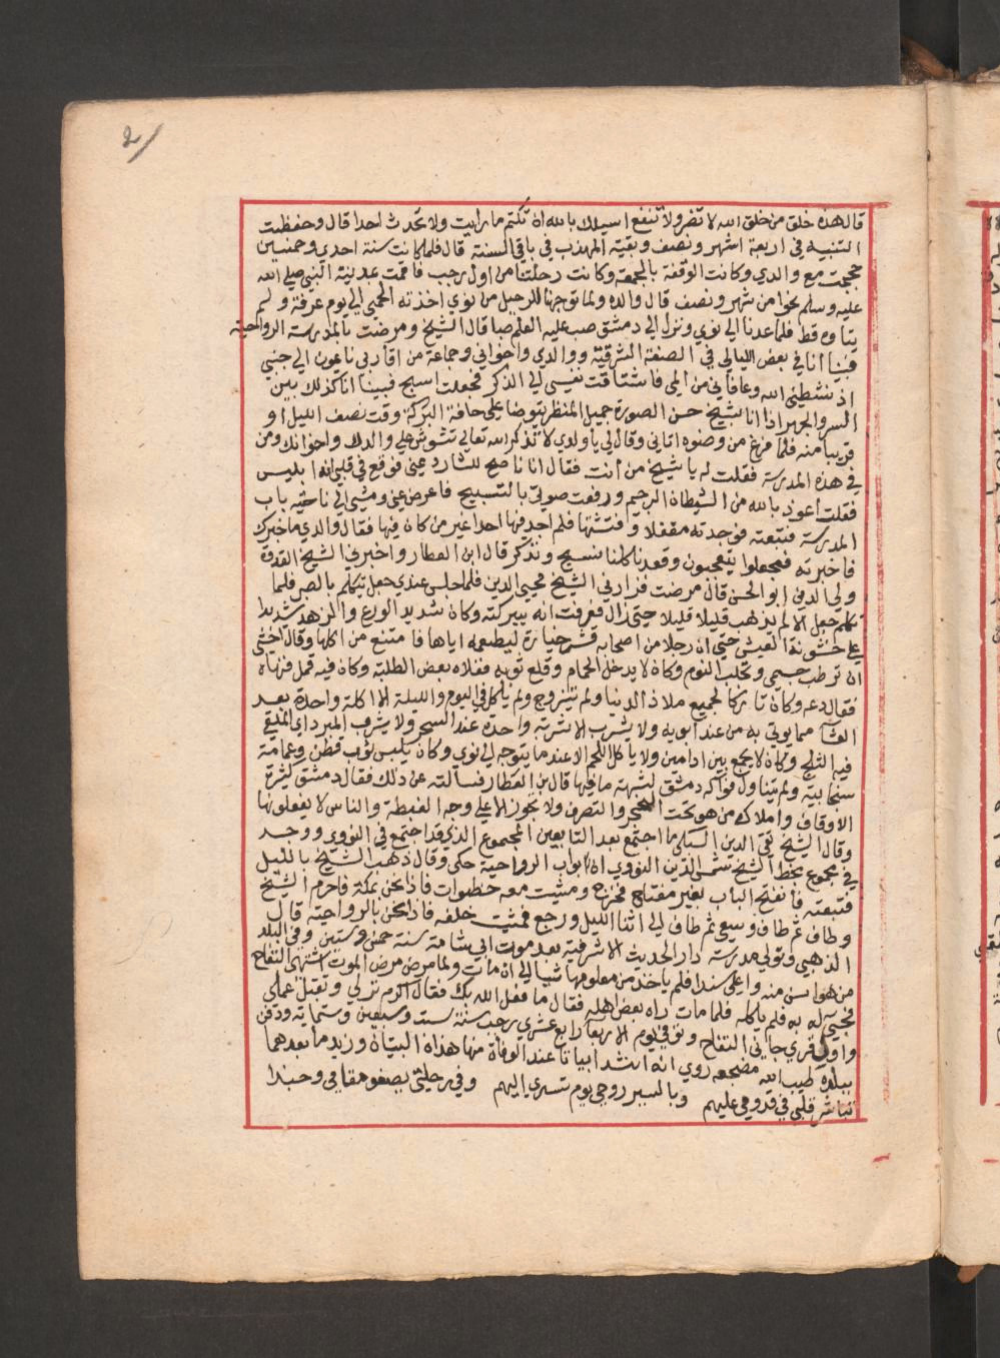 2/
قال هذه خلق من خلق الله لا تضر ولا تنفع اسيلك بالله ان تكتم ما رايت ولا تحدث احدا قال وحفظت
التنبيه في اربعة اشهر ونصف وبقية المهذب في باقي السنة قال فلما كانت سنة احدي وخمسين
حججت مع والدي وكانت الوقفة بالجمعة وكانت رحلتنا من اول رجب فاقمت بمدينة النبي صلي الله
عليه وسلم نحوا من شهر ونصف قال والده ولما توجهنا للرحيل من نوي اخذته الحمي الي يوم عرفة ولم
يتاوه قط فلما عدنا الي نوي ونزل الي دمشق صب عليه العلم صبا قال الشيخ ومرضت بالمدرسة الرواحية
فبينا انا في بعض الليالي في الصفة الشرقية ووالدي واخواني وجماعة من اقاربي نايمون الي جنبي
اذ نشطني الله وعافاني من المي فاشتاقت نفسي الي الذكر فجعلت اسبح فبينا انا كذلك بين
السر والجهر اذا انا بشيخ حسن الصورة جميل المنظر يتوضا علي حافة البركة وقت نصف الليل او
قريبا منه فلما فرغ من وضوه اتاني وقال لي يا ولدي لا تذكر الله تعالي تشوش علي والدك واخوانك ومن
في هذه المدرسة فقلت له يا شيخ من انت فقال انا ناصح لك شارد عني فوقع في قلبي انه ابليس
فقلت اعوذ بالله من الشيطان الرجيم ورفعت صوتي بالتسبيح فاعرض عني ومشي الي ناحية باب
المدرسة فتبعته فوجدته مقفلا وفتشتها فلم اجد فيها احدا غير من كان فيها فقال والدي ما خبرك
فاخبرته فجعلوا يتعجبون وقعدنا كلنا نسبح ونذكر قال ابن العطار واخبرني الشيخ القدوة
ولي الدين ابو الحسن قال مرضت فزارني الشيخ محيي الدين فلما جلس عندي جعل يتكلم بالصبر فلما
تكلم جعل الالم يذهب قليلا قليلا حتي زال فعرفت انه ببركته وكان شديد الورع والزهد شديدا
علي خشونة العيش حتي ان رجلا من اصحابه قشر خيارة ليطعمه اياها فامتنع من اكلها وقال اخشي
ان ترطب جسمي وتجلب النوم وكان لا يدخل الحمام وقلع ثوبه ففلاه بعض الطلبة وكان فيه قمل فنهاه
فقال دعه وكان تاركا لجميع ملاذ الدنيا ولم يتزوج ولم ياكل في اليوم والليلة الا اكلة واحدة بعد
العشا مما يوتي به من عند ابويه ولا يشرب الا شربة واحدة عند السحر ولا يشرب المبرد اي الملقي
فيه الثلج وكان لا يجمع بين ادامين ولا ياكل اللحم الا عند ما يتوجه الي نوي وكان يلبس ثوب قطن وعمامة
سنجابية ولم يتناول فواكه دمشق لشبهة ما فيها قال بن العطار فسالته عن ذلك فقال دمشق كثيرة
الاوقاف واملاك من هو تحت الحجر والتصرف ولا يجوز الا علي وجه الغبطة والناس لا يفعلونها
وقال الشيخ تقي الدين السبكي ما اجتمع بعد التابعين المجموع الذي قد اجتمع في النووي ووجد
في مجموع بخط الشيخ شمس الدين النووي ان بواب الرواحية حكي وقال ذهب الشيخ بالليل
فتبعته فانفتح الباب بغير مفتاح فخرج ومشيت معه خطوات فاذا نحن بمكة فاحرم الشيخ
وطاف ثم طاف وسعي ثم طاف الي اثنا الليل ورجع فمشيت خلفه فاذا نحن بالرواحية قال
الذهبي وتولي مدرسة دار الحديث الاشرفية بعد موت ابي شامة سنة خمس وستين وفي البلد
من هو اسن منه واعلي سندا فلم ياخذ من معلومها شيا الي ان مات ولما مرض مرض الموت اشتهي التفاح
فجيي له به فلم ياكله فلما مات راه بعض اهله فقال ما فعل الله بك فقال اكرم نزلي وتقبل عملي
واول قري جاني التفاح وتوفي يوم الاربعا رابع عشري رجب سنة ست وسبعين وستماية ودفن
ببلده طيب الله مضجعه روي انه انشد ابياتا عند الوفاة منها هذان البيتان وزيد ما بعدهما
تباشر قلبي في قدومي عليهم وبالسير روحي يوم تسري اليهم وفي رحلتي يصفو مقامي وحبذا